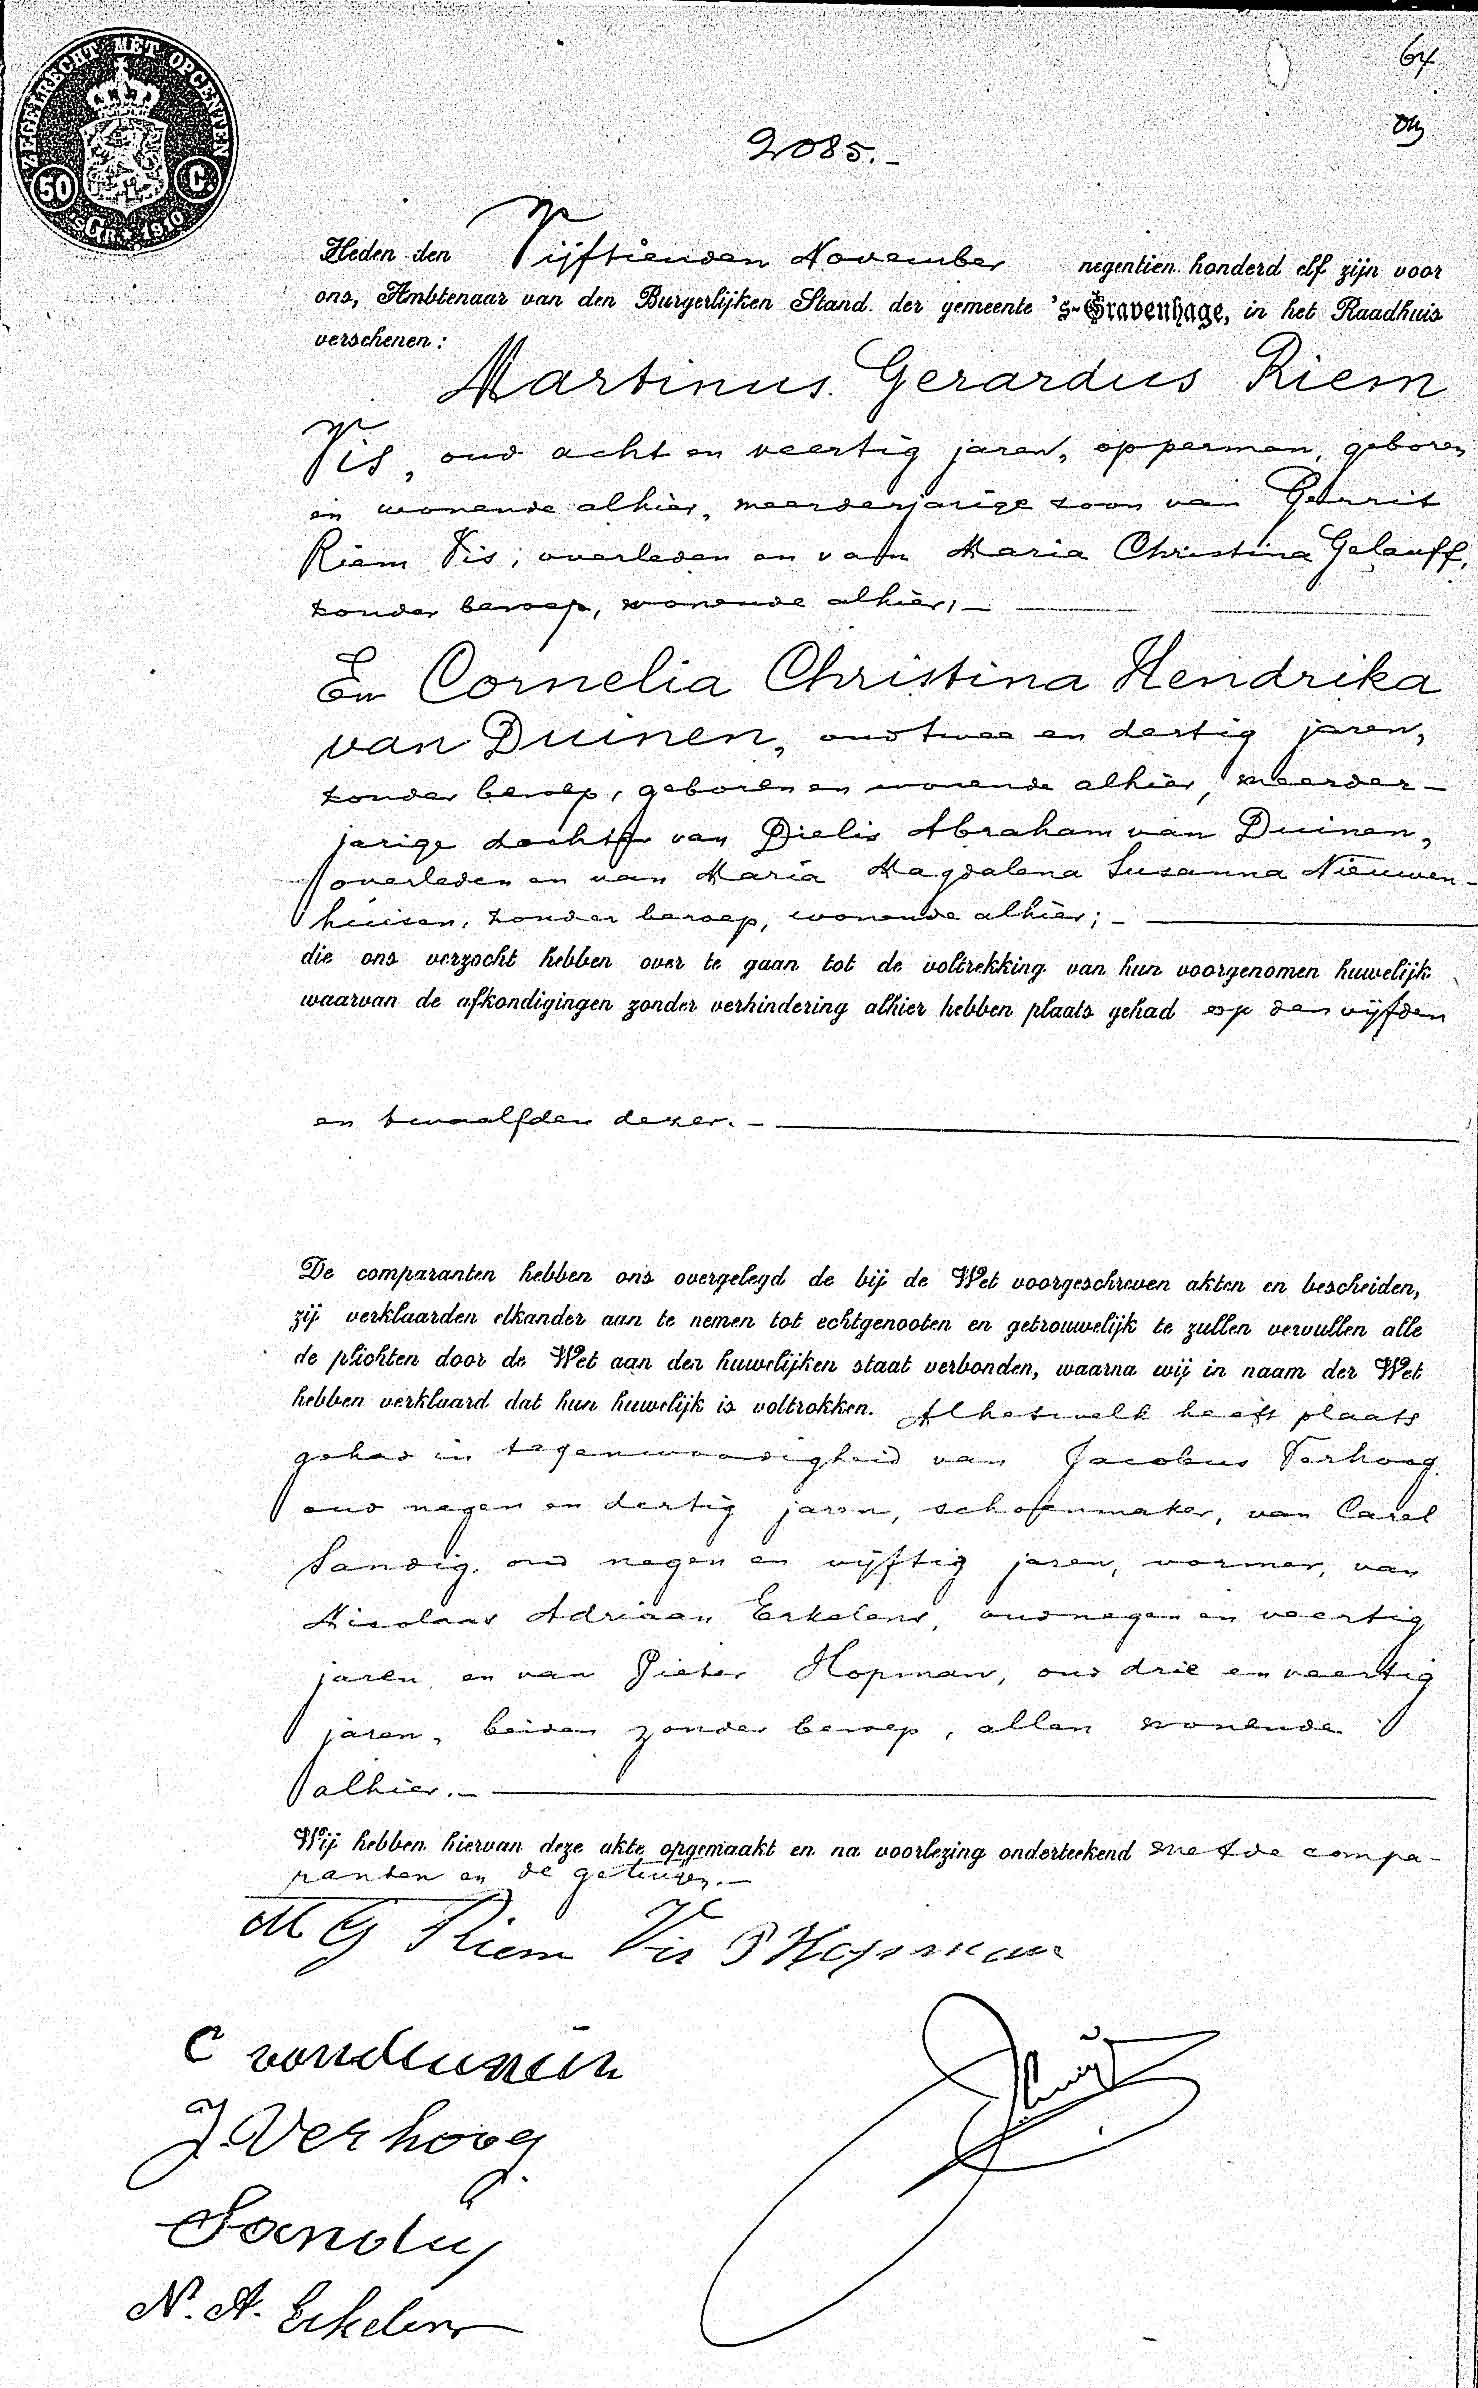 64
ZEGELRECHT MET OPCENTEN
50 C.
'sGR. 1910
2085.-
Heden den Vijftienden November negentien honderd elf zijn voor
ons, Ambtenaar van den Burgerlijken Stand der gemeente 's-Gravenhage, in het Raadhuis
verschenen:
Martinus Gerardus Riem
Vis, oud acht en veertig jaren, opperman, geboren
en wonende alhier, meerderjarige zoon van Gerrit
Riem Vis, overleden en van Maria Christina Gelauff,
zonder beroep, wonende alhier;-
En Cornelia Christina Hendrika
van Duinen, oud twee en dertig jaren,
zonder beroep, geboren en wonende alhier, meerder-
jarige dochter van Dielis Abraham van Duinen,
overleden en van Maria Magdalena Susanna Nieuwen-
huisen, zonder beroep, wonende alhier;-
die ons verzocht hebben over te gaan tot de voltrekking van hun voorgenomen huwelijk
waarvan de afkondigingen zonder verhindering alhier hebben plaats gehad op den vijfden
en twaalfden dezer.-
De comparanten hebben ons overgelegd de bij de Wet voorgeschreven akten en bescheiden,
zij verklaarden elkander aan te nemen tot echtgenooten en getrouwelijk te zullen vervullen alle
de plichten door de Wet aan den huwelijken staat verbonden, waarna wij in naam der Wet
hebben verklaard dat hun huwelijk is voltrokken. Alhetwelk heeft plaats
gehad in tegenwoordigheid van Jacobus Verhoog,
oud negen en dertig jaren, schoenmaker, van Carel
Sandig, oud negen en vijftig jaren, vormer, van
Nicolaas Adriaan Erkelens, oud negen en veertig
jaren en van Pieter Hopman, oud drie en veertig
jaren, beiden zonder beroep, allen wonende
alhier.-
Wij hebben hiervan deze akte opgemaakt en na voorlezing onderteekend met de compa-
ranten en de getuigen.-
M G Riem Vis P Hopman
C van duinen
J. Verhoog
Sandig
N. A. Erkelens